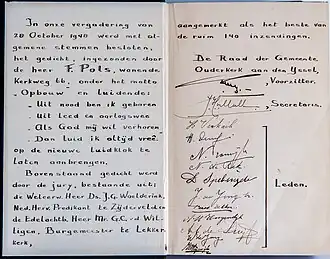 In onze vergadering van
28 October 1948 werd met al-
gemene stemmen besloten,
het gedicht, ingezonden door
de heer F. Pols, wonende
Kerkweg 66, onder het motto
Opbouw en luidende:
Uit nood ben ik geboren
Uit leed en oorlogswee
Als God mij wil verhoren
Dan luid ik altijd vreê.
op de nieuwe luidklok te
laten aanbrengen.
Bovenstaand gedicht werd
door de jury, bestaande uit:
de Weleerw. Heer Ds. J.G. Woelderink,
Ned. Herv. Predikant te Zijderveld en
de Edelachtb. Heer Mr. G.C. v.d. Wil-
ligen, Burgemeester te Lekker-
kerk,
aangemerkt als het beste van
de ruim 140 inzendingen.
De Raad der Gemeente
Ouderkerk aan den IJssel,
Voorzitter.
Secretaris.
Leden.